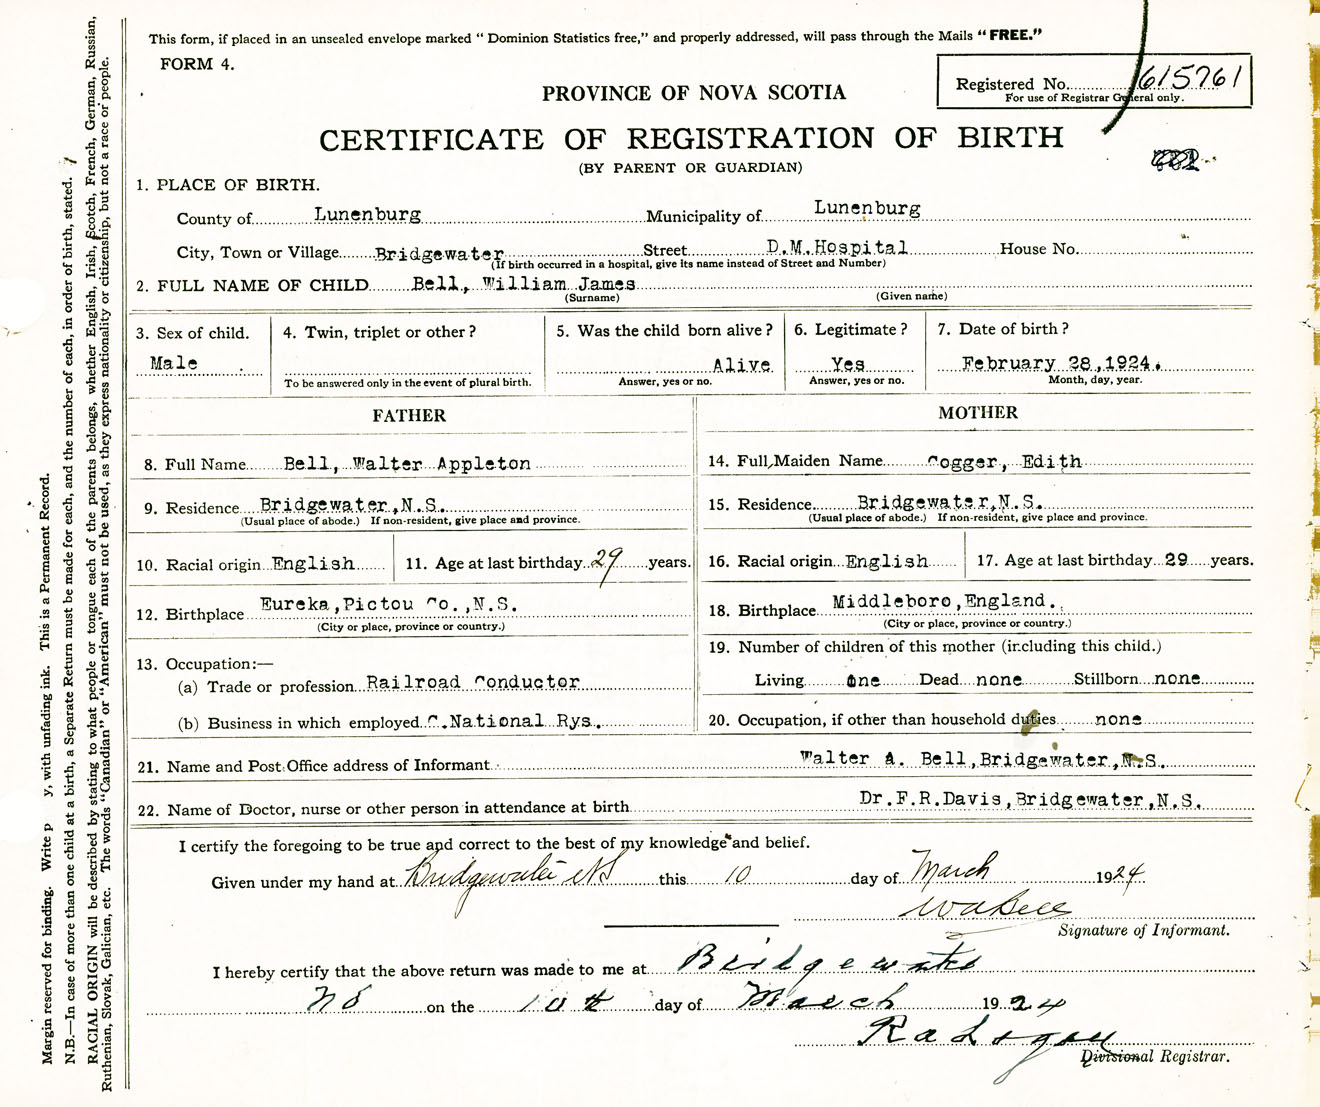 This form, if placed in an unsealed envelope marked " Dominion Statistics free," and properly addressed, will pass through the Mails "FREE."
FORM 4.
Registered No. 615761
For use of Registrar General only.
PROVINCE OF NOVA SCOTIA
CERTIFICATE OF REGISTRATION OF BIRTH
(BY PARENT OR GUARDIAN)
1. PLACE OF BIRTH.
County of Lunenburg Municipality of Lunenburg
City, Town or Village Bridgewater Street D.M.Hospital House No.
(If birth occurred in a hospital, give its name instead of Street and Number)
2. FULL NAME OF CHILD Bell, William James
(Surname) (Given name)
3. Sex of child. 4. Twin, triplet or other? 5. Was the child born alive? 6. Legitimate? 7. Date of birth?
Male Alive Yes February 28,1924.
To be answered only in the event of plural birth. Answer, yes or no. Answer, yes or no. Month, day, year.
FATHER MOTHER
8. Full Name Bell, Walter Appleton 14. Full Maiden Name Cogger, Edith
9. Residence Bridgewater,N.S. 15. Residence Bridgewater,N.S.
(Usual place of abode.) If non-resident, give place and province. (Usual place of abode.) If non-resident, give place and province.
10. Racial origin English 11. Age at last birthday 29 years. 16. Racial origin English 17. Age at last birthday 29 years.
12. Birthplace Eureka,Pictou Co.,N.S. 18. Birthplace Middleboro,England.
(City or place, province or country.) (City or place, province or country.)
13. Occupation:— 19. Number of children of this mother (including this child.)
(a) Trade or profession Railroad Conductor Living One Dead none Stillborn none
(b) Business in which employed C.National Rys. 20. Occupation, if other than household duties none
21. Name and Post Office address of Informant Walter A. Bell,Bridgewater,N.S.
22. Name of Doctor, nurse or other person in attendance at birth Dr.F.R.Davis,Bridgewater,N.S.
I certify the foregoing to be true and correct to the best of my knowledge and belief.
Given under my hand at Bridgewater NS this 10 day of March 1924
W A Bell
Signature of Informant.
I hereby certify that the above return was made to me at Bridgewater
NS on the 10th day of March 1924
Divisional Registrar.
Margin reserved for binding. Write p y, with unfading ink. This is a Permanent Record.
N.B.—In case of more than one child at a birth, a Separate Return must be made for each, and the number of each, in order of birth, stated.
RACIAL ORIGIN will be described by stating to what people or tongue each of the parents belongs, whether English, Irish, Scotch, French, German, Russian,
Ruthenian, Slovak, Galician, etc. The words "Canadian" or "American" must not be used, as they express nationality or citizenship, but not a race or people.